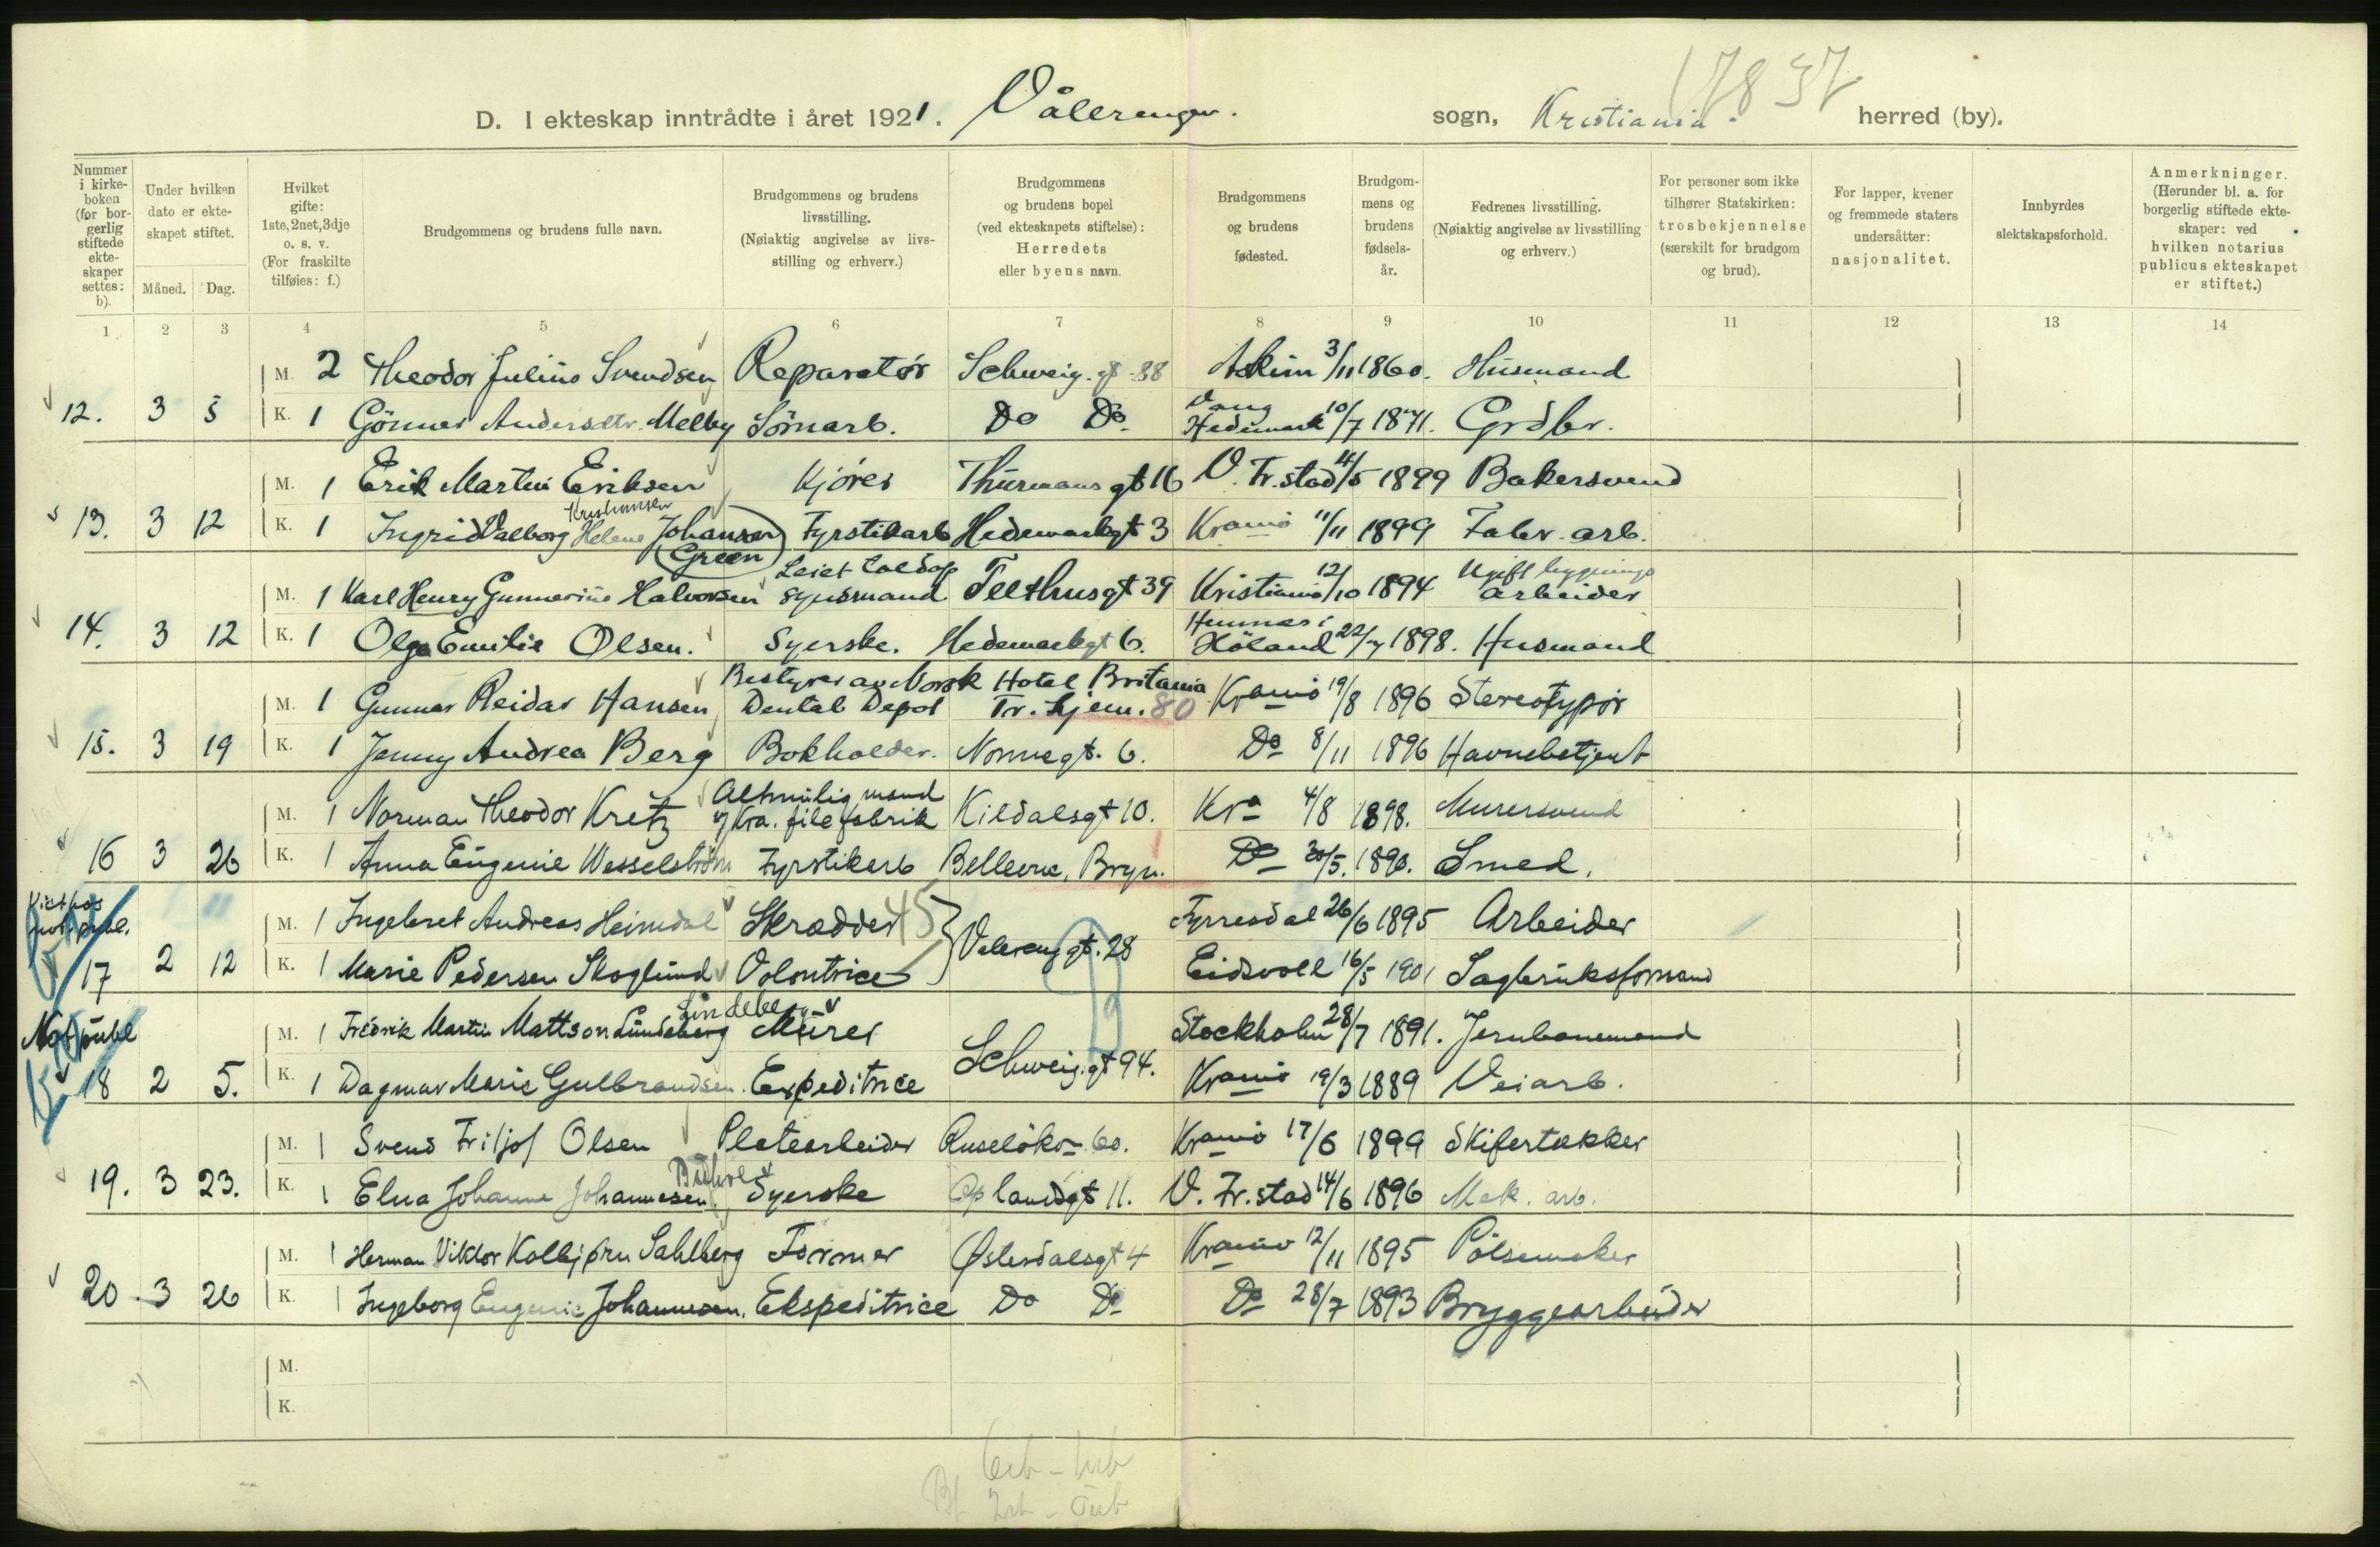 1837
D. I ekteskap inntrådte i året 1921. Vålerengen. sogn, Kristiania. herred (by).
Nummer i kirke-boken (for bor-gerlig stiftede ekte-skaper settes: b).
Under hvilken dato er ekte-skapet stiftet.
Måned. Dag.
Hvilket gifte: 1ste, 2net, 3dje o. s. v. (For fraskilte tilføies: f.)
Brudgommens og brudens fulle navn.
Brudgommens og brudens livsstilling. (Nøiaktig angivelse av livs-stilling og erhverv.)
Brudgommens og brudens bopel (ved ekteskapets stiftelse): Herredets eller byens navn.
Brudgommens og brudens fødested.
Brudgom-mens og brudens fødsels-år.
Fedrenes livsstilling. (Nøiaktig angivelse av livsstilling og erhverv.)
For personer som ikke tilhører Statskirken: trosbekjennelse (særskilt for brudgom og brud).
For lapper, kvener og fremmede staters undersåtter: nasjonalitet.
Innbyrdes slektskapsforhold.
Anmerkninger. (Herunder bl. a. for borgerlig stiftede ekte-skaper: ved hvilken notarius publicus ekteskapet er stiftet.)
1 2 3 4 5 6 7 8 9 10 11 12 13 14
M. 2 Theodor Julius Svendsen Reparatør Schweig. gt 88 Askim 3/11 1860. Husmand
12. 3 5 K. 1 Gönner Andersdtr. Melby Sömarb. Do Do Vang Hedemark 10/7 1871. Grdbr.
M. 1 Erik Martin Eriksen Kjörer Thurmans gt 16 V. Fr.stad 4/5 1899 Bakersvend
Kristiansen
13. 3 12 K. 1 Ingrid Valborg Helene Johansen (Green) Fyrstikarb Hedemarkgt 3 Krania 11/11 1899 Fabr. arb.
M. 1 Karl Henry Gunnerius Halvorsen Leiet toldop synsmand Telthusgt 39 Kristiania 12/10 1894 Ugift bygnings arbeider
14. 3 12 K. 1 Olga Emilie Olsen. Syerske. Hedemarkgt 6. Hemnes i Höland 22/7 1898. Husmand
M. 1 Gunnar Reidar Hansen Bestyrer av Norsk Dental Depot Hotel Britania Tr.hjem. 80 Krania 19/8 1896 Stereotypör
15. 3 19 K. 1 Jenny Andrea Berg Bokholder. Nornegt. 6. Do 8/11 1896 Havnebetjent
M. 1 Norman Theodor Kretz Altmulig mand v/ Kra. filefabrik Kildalsgt 10. Kra 4/8 1898. Murersvend
16 3 26 K. 1 Anna Eugenie Wesselström Fyrstikarb Bellevue, Bryn. Do 30/5. 1890. Smed.
M. 1 Ingebret Andreas Heimdal Skrædder 45 Valereng gt. 28 Fyrresdal 26/6 1895 Arbeider
not. publ.
17 2 12 K. 1 Marie Pedersen Skoglund Volontrice Eidsvoll 16/5 1901 Sagbruksformand
Lindeberg
Not publ M. 1 Fredrik Martin Mattson Lundeberg Murer Schweig. gt 94. Stockholm 28/7 1891. Jernbanemand
18 2 5. K. 1 Dagmar Marie Gulbrandsen. Expeditrice Krania 19/3 1889 Veiarb.
M. 1 Svend Fritjof Olsen Platearbeider Ruselökv 60. Krania 17/6 1899 Skifertækker
19. 3 23. K. 1 Elna Johanne Johannesen Syerske Oplandsgt 11. V. Fr.stad 14/6 1896 Mek. arb.
M. 1 Herman Viktor Kolbjørn Sahlberg Former Østerdalsgt 4 Krania 12/11 1895 Pölsemaker
20. 3 26 K. 1 Ingeborg Eugenie Johannesen. Ekspeditrice Do Do Do 28/7 1893 Bryggearbeider
M.
K.